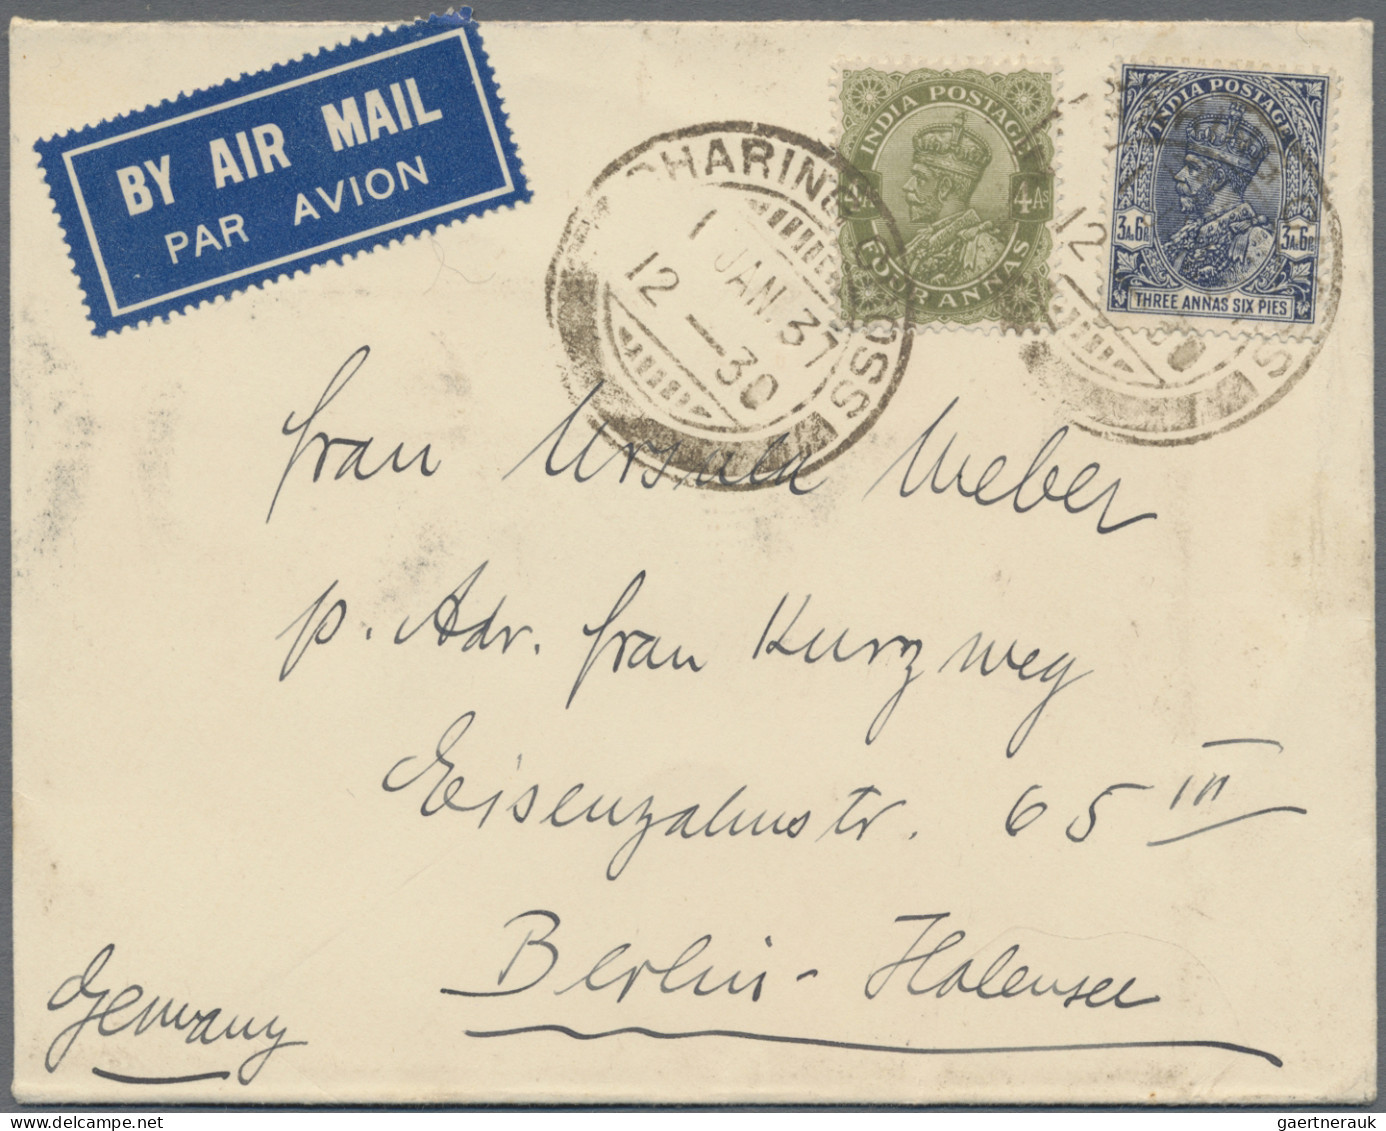 BY AIR MAIL
PAR AVION
INDIA POSTAGE
4As
FOUR ANNAS
INDIA POSTAGE
3A.6P.
3A.6P.
THREE ANNAS SIX PIES
CHARING CROSS
1 JAN. 37
12-30
12
30
SS
Frau Ursula Weber
p. Adr. Frau Kurzweg
Eisenzahnstr. 65 III
Berlin-Halensee
Germany
gaertnerauk